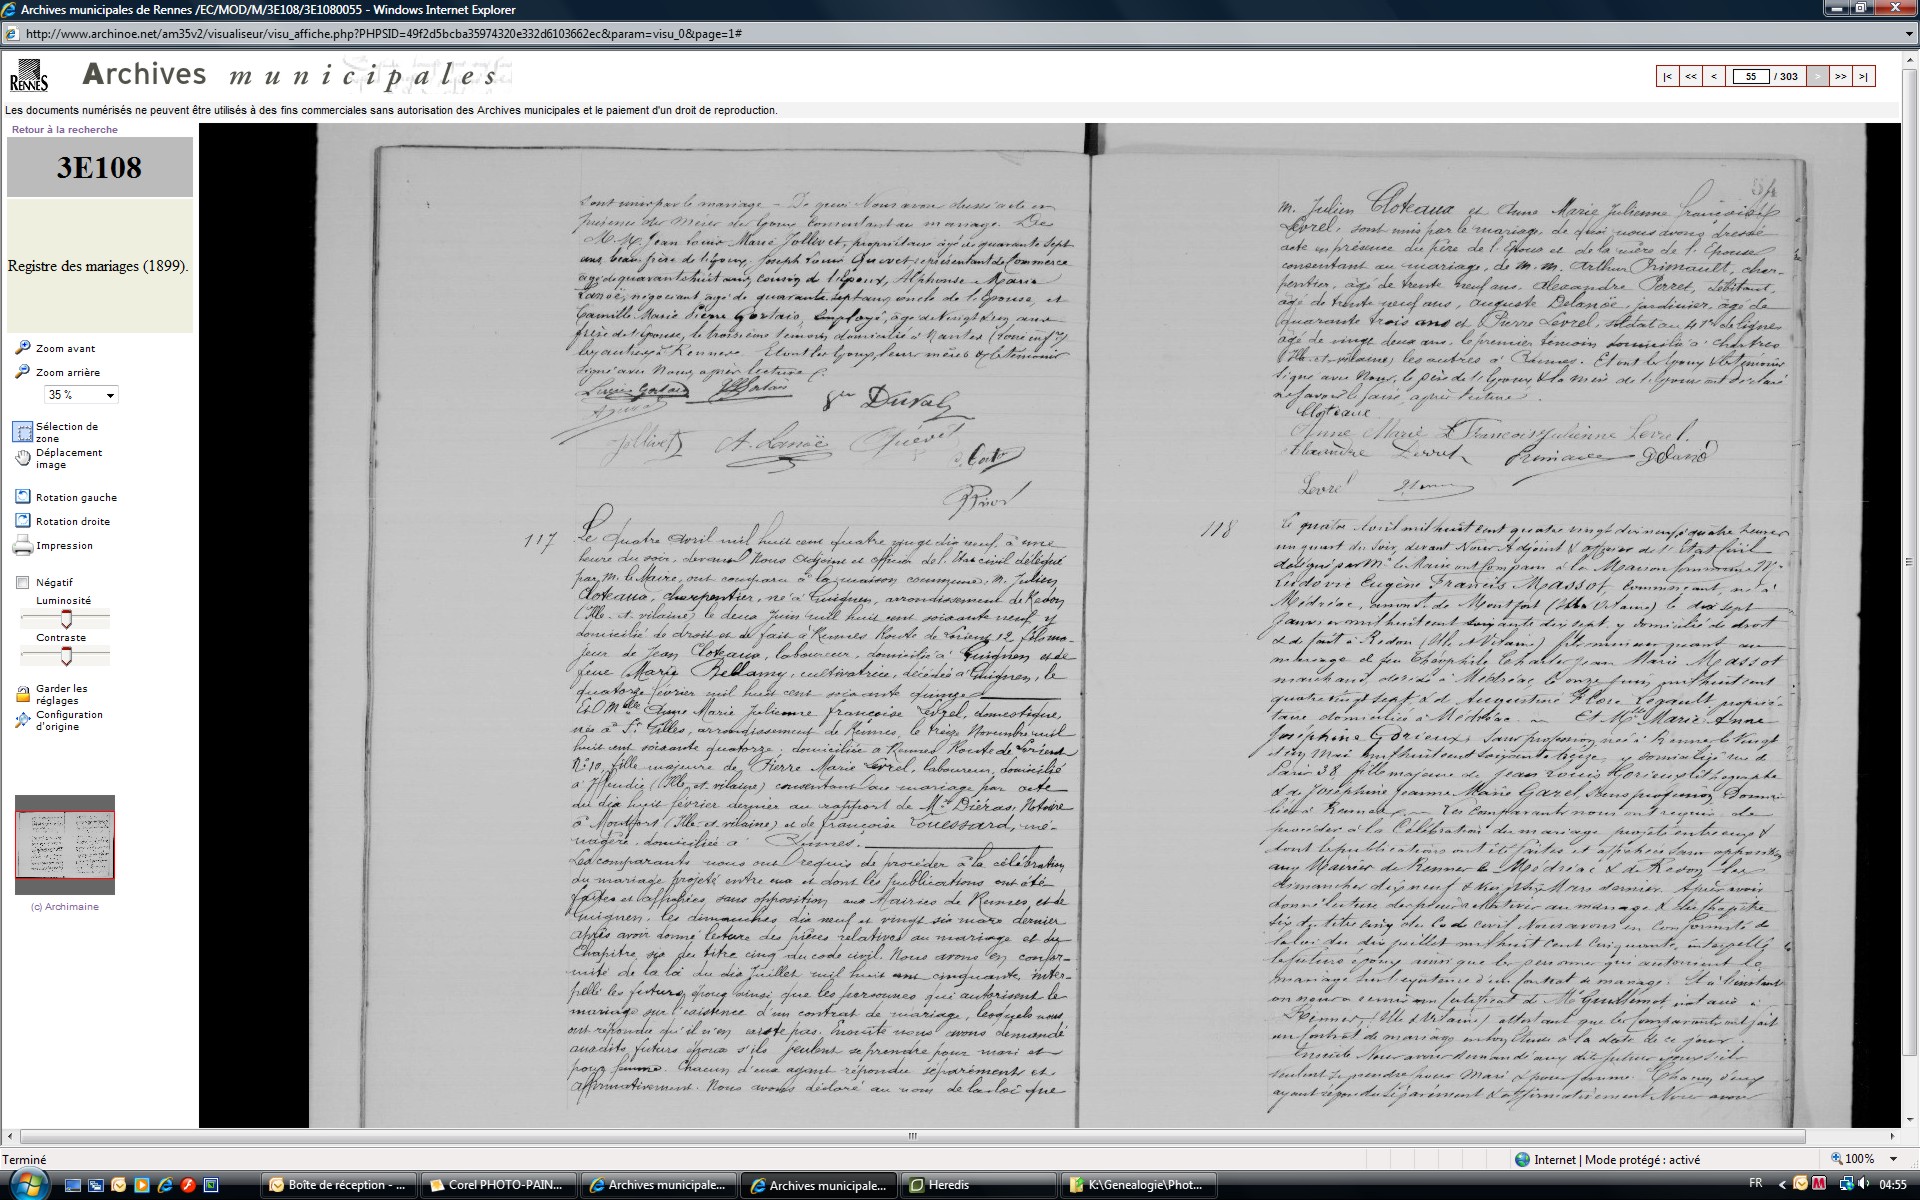 Archives municipales de Rennes /EC/MOD/M/3E108/3E1080055 - Windows Internet Explorer
http://www.archinoe.net/am35v2/visualiseur/visu_affiche.php?PHPSID=49f2d5bcba35974320e332d6103662ec&param=visu_0&page=1#
RENNES
Archives municipales
|< << < 55 / 303 > >> >|
Les documents numérisés ne peuvent être utilisés à des fins commerciales sans autorisation des Archives municipales et le paiement d'un droit de reproduction.
Retour à la recherche
3E108
Registre des mariages (1899).
Zoom avant
Zoom arrière
35 %
Sélection de
zone
Déplacement
image
Rotation gauche
Rotation droite
Impression
Négatif
Luminosité
Contraste
Garder les
réglages
Configuration
d'origine
(c) Archimaine
sont unis par le mariage - De quoi Nous avons dressé acte en
présence des mères des Epoux consentant au mariage. De
M.M. Jean Louis Marie Jollivet, propriétaire âgé de quarante sept
ans, beau-frère de l'Epoux, Joseph Louis Quevet représentant de commerce
âgé de quarante huit ans, cousin de l'Epoux, Alphonse Marie
Lanoë, négociant âgé de quarante sept ans oncle de l'Epouse, et
Camille Marie Pierre Gortais, employé, âgé de vingt deux ans
frère de l'Epouse, le troisième témoin domicilié à Nantes
les autres à Rennes. Et ont les Epoux, leurs mères et les témoins
signé avec Nous, après lecture
Duval
Jollivet A. Lanoë Quévet
117
Le quatre avril mil huit cent quatre vingt dix neuf, à une
heure du soir, devant Nous Adjoint et officier de l'Etat civil délégué
par M. le Maire, ont comparu à la maison commune, M. Julien
Cloteaux, charpentier, né à Guignen, arrondissement de Redon
(Ille-et-vilaine) le deux Juin mil huit cent soixante neuf, y
domicilié de droit et de fait à Rennes Route de Lorient 12, fils ma-
jeur de Jean Cloteaux, laboureur, domicilié à Guignen et de
feue Marie Bellamy, cultivatrice, décédée à Guignen, le
quatorze février mil huit cent soixante quinze
Et Mlle Anne Marie Julienne françoise Levrel, domestique,
née à St Gilles, arrondissement de Rennes, le treize Novembre mil
huit cent soixante quatorze, domiciliée à Rennes Route de Lorient
No 10, fille majeure de Pierre Marie Levrel, laboureur, domicilié
à Iffendic (Ille et vilaine) consentant au mariage par acte
du dix huit février dernier au rapport de Me Diéras, Notaire
à Montfort (Ille et vilaine) et de françoise Louessard, mé-
nagère, domiciliée à Rennes.
Les comparants nous ont requis de procéder à la célébration
du mariage projeté entre eux et dont les publications ont été
faites et affichées, sans opposition aux Mairies de Rennes, et de
Guignen, les dimanches dix neuf et vingt six mars dernier
après avoir donné lecture des pièces relatives au mariage et du
Chapitre six du titre cinq du code civil. Nous avons en confor-
mité de la loi du dix Juillet mil huit cent cinquante, inter-
pellé les futurs époux ainsi que les personnes qui autorisent le
mariage sur l'existence d'un contrat de mariage, lesquels nous
ont répondu qu'il n'en existe pas. Ensuite nous avons demandé
auxdits futurs époux s'ils veulent se prendre pour mari et
pour femme. Chacun d'eux ayant répondu séparément et
affirmativement. Nous avons déclaré au nom de la loi que
54
M. Julien Cloteaux et Anne Marie Julienne françoise
Levrel, sont unis par le mariage, de quoi nous avons dressé
acte en présence du père de l'Epoux et de la mère de l'Epouse
consentant au mariage, de M.M. Arthur Primault, char-
pentier, âgé de trente neuf ans, Alexandre Perret, débitant,
âgé de trente neuf ans, Auguste Delanöe, jardinier, âgé de
quarante trois ans et Pierre Levrel, soldat au 41e de ligne
âgé de vingt deux ans, le premier témoin domicilié à Chartres
(Ille-et-vilaine) les autres à Rennes. Et ont les Epoux & les témoins
signé avec Nous, le père de l'Epoux & la mère de l'Epouse ont déclaré
ne savoir le faire, après lecture.
Cloteaux
Anne Marie Françoise Julienne Levrel.
Perret Primault
Levrel
118
Le quatre Avril mil huit cent quatre vingt dix neuf, à quatre heures
un quart du soir, devant Nous Adjoint & officier de l'Etat Civil
délégué par Mr le Maire ont comparu à la Maison Commune Mr
Ludovic Eugène Francis Massot, Commerçant, né à
Médréac, arrondt de Montfort (Ille & Vilaine) le dix sept
Janvier mil huit cent soixante dix sept, y domicilié de droit
& de fait à Redon (Ille & Vilaine) fils mineur quant au
mariage de feu Théophile Charles Jean Marie Massot
marchand, décédé à Médréac, le onze Juin mil huit cent
quatre vingt sept, & de Augustine Flore Legault, proprié-
taire domiciliée à Médréac. Et Mlle Marie Anne
Joséphine Gorieux, sans profession née à Rennes le vingt
et un Mai mil huit cent soixante treize, y domiciliée rue de
Paris 38, fille majeure de Jean Louis Gorieux lithographe
& de Joséphine Jeanne Marie Garel, sans profession, domici-
liés à Rennes. Les Comparants nous ont requis de
procéder à la Célébration du mariage projeté entre eux &
dont les publications ont été faites et affichées sans opposition
aux Mairies de Rennes, de Médréac & de Redon les
dimanches dix neuf & vingt six Mars dernier. Après avoir
donné lecture des pièces relatives au mariage & du Chapitre
six du titre cinq du Code civil. Nous avons en Conformité de
la loi du dix juillet mil huit cent cinquante, interpellé
les futurs époux ainsi que les personnes qui autorisent le
mariage sur l'existence d'un Contrat de mariage. Et à l'instant
on nous a remis un Certificat de Me Guillemot, notaire à
Rennes, (Ille & Vilaine) attestant que les Comparants ont fait
un Contrat de mariage en son Etude à la date de ce jour.
Ensuite Nous avons demandé aux dits futurs époux s'ils
veulent se prendre pour Mari & pour femme. Chacun d'eux
ayant répondu séparément & affirmativement Nous avons
Terminé
Internet | Mode protégé : activé
100%
Boîte de réception - ...
Corel PHOTO-PAIN...
Archives municipale...
Archives municipale...
Heredis
K:\Genealogie\Phot...
FR
04:55